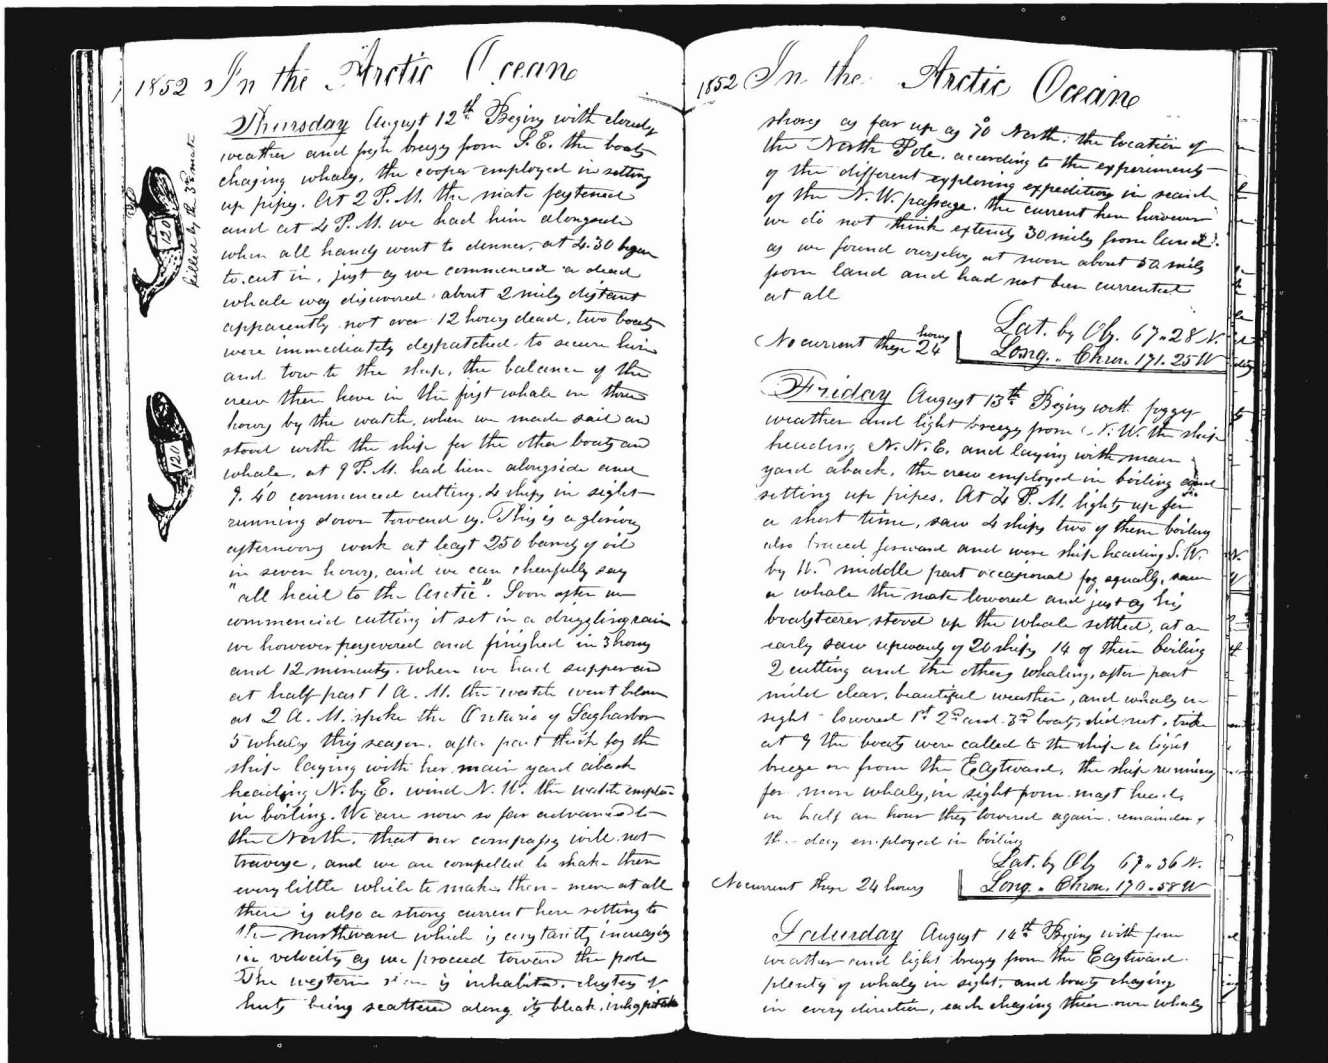 1852 In the Arctic Ocean
Thursday August 12th Begins with cloudy
weather and fresh breezes from S.E. the boats
chasing whales, the cooper employed in setting
up pipes. At 2 P.M. the mate fastened
and at 4 P.M. we had him alongside
when all hands went to dinner, at 4.30 began
to cut in, just as we commenced a dead
whale was discovered about 2 miles distant
apparently not over 12 hours dead, two boats
were immediately despatched to secure him
and tow to the ship, the balance of the
crew then hove in the first whale in three
hours by the watch, when we made sail and
stood with the ship for the other boats and
whale, at 9 P.M. had him alongside and
9.40 commenced cutting, 4 ships in sight
running down toward us. This is a glorious
afternoons work at least 250 barrels of oil
in seven hours, and we can cheerfully say
"all hail to the Arctic". Soon after we
commenced cutting it set in a drizzling rain
we however persevered and finished in 3 hours
and 12 minutes, when we had supper and
at half past 1 A.M. the watch went below
at 2 A.M. spoke the Ontario of Sagharbor
5 whales this season, after part thick fog the
ship laying with her main yard aback
heading N. by E. wind N.W. the watch employed
in boiling. We are now so far advanced to
the North, that our compasses will not
traverse, and we are compelled to shake them
every little while to make them move at all
there is also a strong current here setting to
the northward which is constantly increasing
in velocity as we proceed toward the pole
The western is inhabited, clusters of
huts being scattered along its bleak, inhospitable
120
killed by the 3rd mate
120
1852 In the Arctic Ocean
shores as far up as 70° North, the location of
the North Pole, according to the experiments
of the different exploring expeditions in search
of the N.W. passage. the current here however
we do not think extends 30 miles from land
as we found ourselves at noon about 50 miles
from land and had not been currented
at all
No current these 24 hours
Lat. by Ob. 67.28 N.
Long. " Chron. 171.25 W
Friday August 13th Begins with foggy
weather and light breezes from N.W. the ship
heading N.N.E. and laying with main
yard aback, the crew employed in boiling and
setting up pipes. At 4 P.M. lights up for
a short time, saw 4 ships two of them boiling
also braced forward and wore ship heading S.W.
by W. middle part occasional fog squalls, saw
a whale the mate lowered and just as his
boatsteerer stood up the whale settled, at
early saw upwards of 20 ships 14 of them boiling
2 cutting and the others whaling, after part
mild clear, beautiful weather, and whales in
sight lowered 1st 2nd and 3rd boats, did not strike
at 9 the boats were called to the ship a light
breeze on from the Eastward, the ship running
for more whales, in sight from mast head,
in half an hour they lowered again, remainder of
the day employed in boiling
No current these 24 hours
Lat. by Ob 67.36 N.
Long. " Chron. 170.58 W
Saturday August 14th Begins with fine
weather and light breezes from the Eastward.
plenty of whales in sight, and boats chasing
in every direction, each chasing their own whales